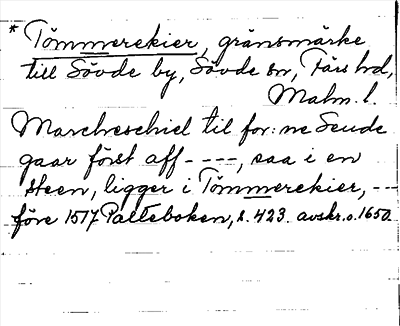 * Tömmerekier, gränsmärke
till Sövde by, Sövde sn, Färs hd,
Malm. l.
Marcheschiel til for: ne Seude
gaar först aff - - - -, saa i en
steen, ligger i Tömmerekier, - -
före 1517 Palteboken, s. 423. avskr. o. 1650.